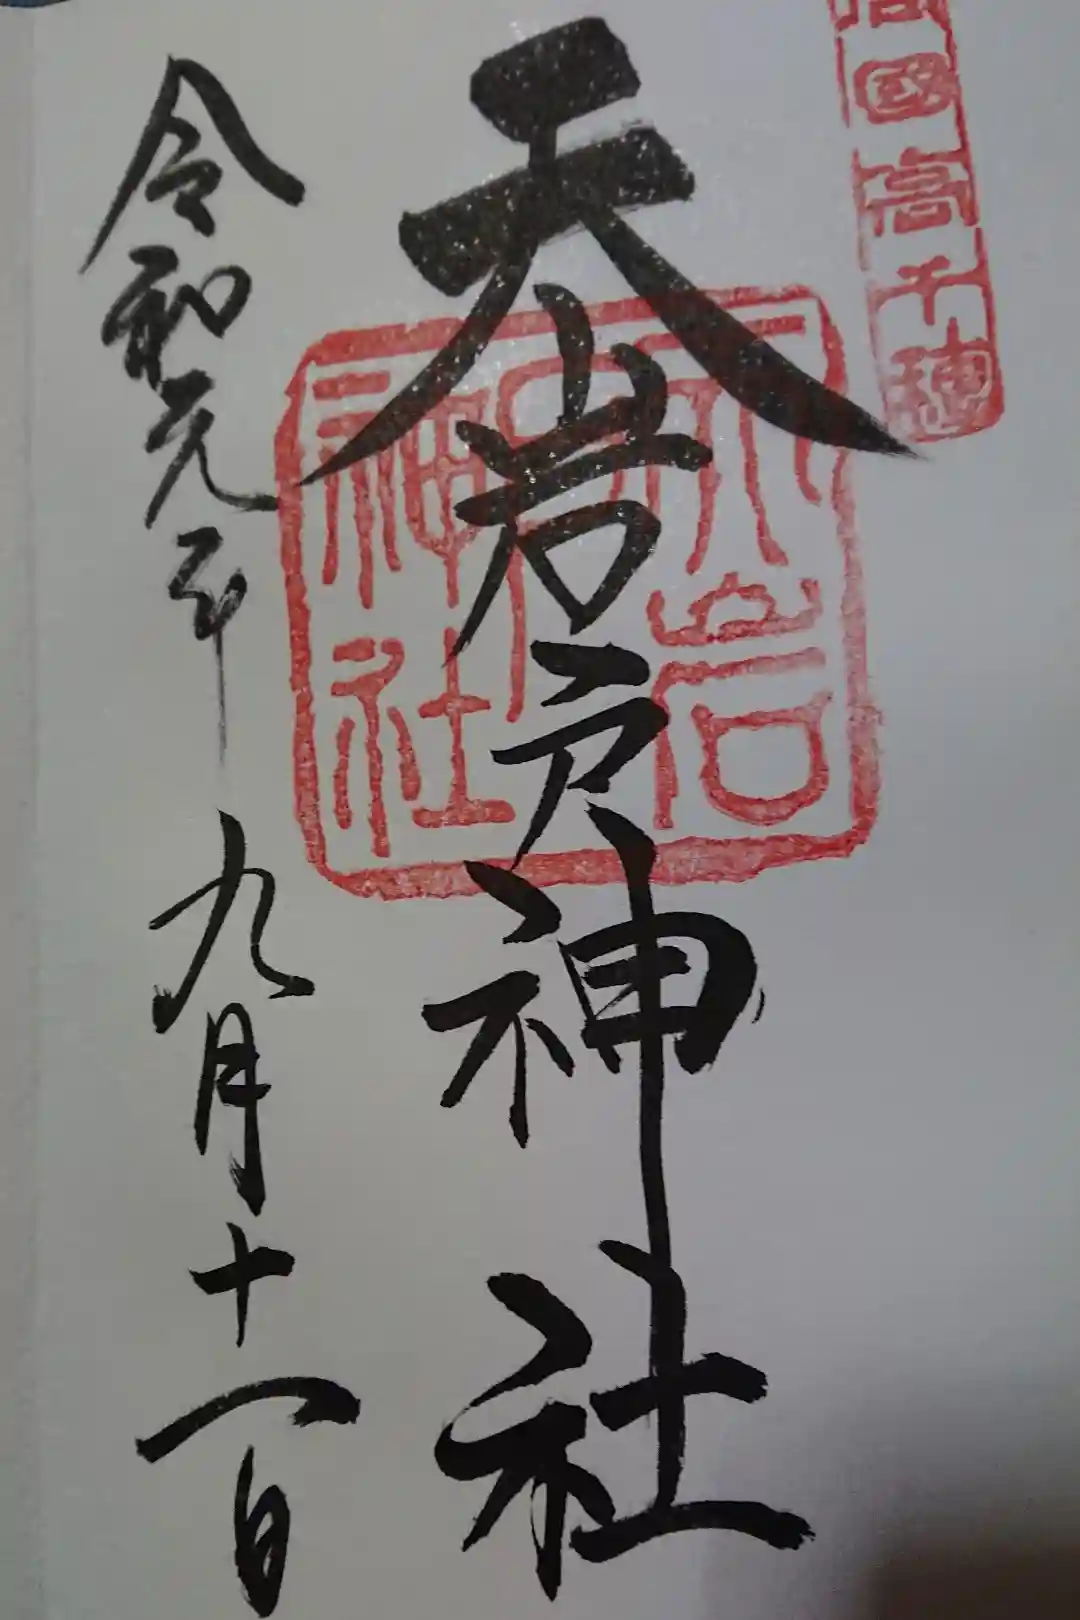 國高千穂
天岩戸神社
天岩戸神社
令和元年九月十一日